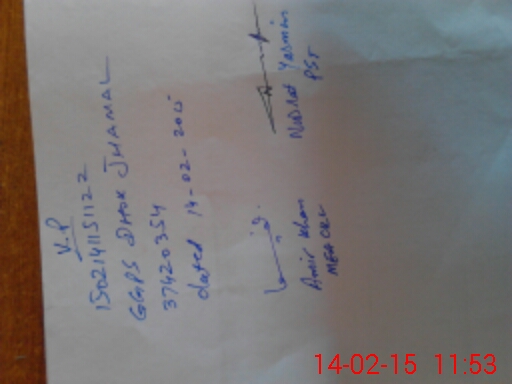 V.P
1502141151122
GGPS DHOK JHAMAL
37420354
dated 14-02-2015
Amir Khan
MEA CKL
Nudrat Yasmin
PST
14-02-15 11:53